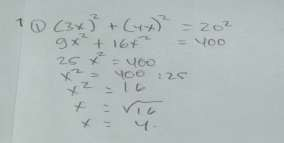 1 ① (3x)² + (4x)² = 20²
9x² + 16x² = 400
25 x² = 400
x² = 400 : 25
x² = 16
x = √16
x = 4.